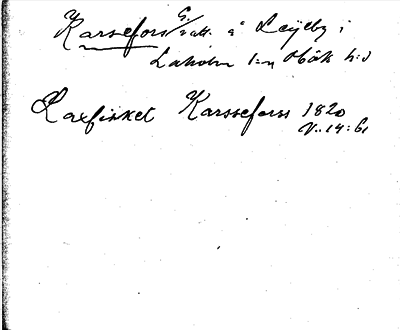 Karsefors G/vatt. å Leijeby i
Laholm l:n Höök h:d
Laxfisket Karssefors 1820
V. 14:61